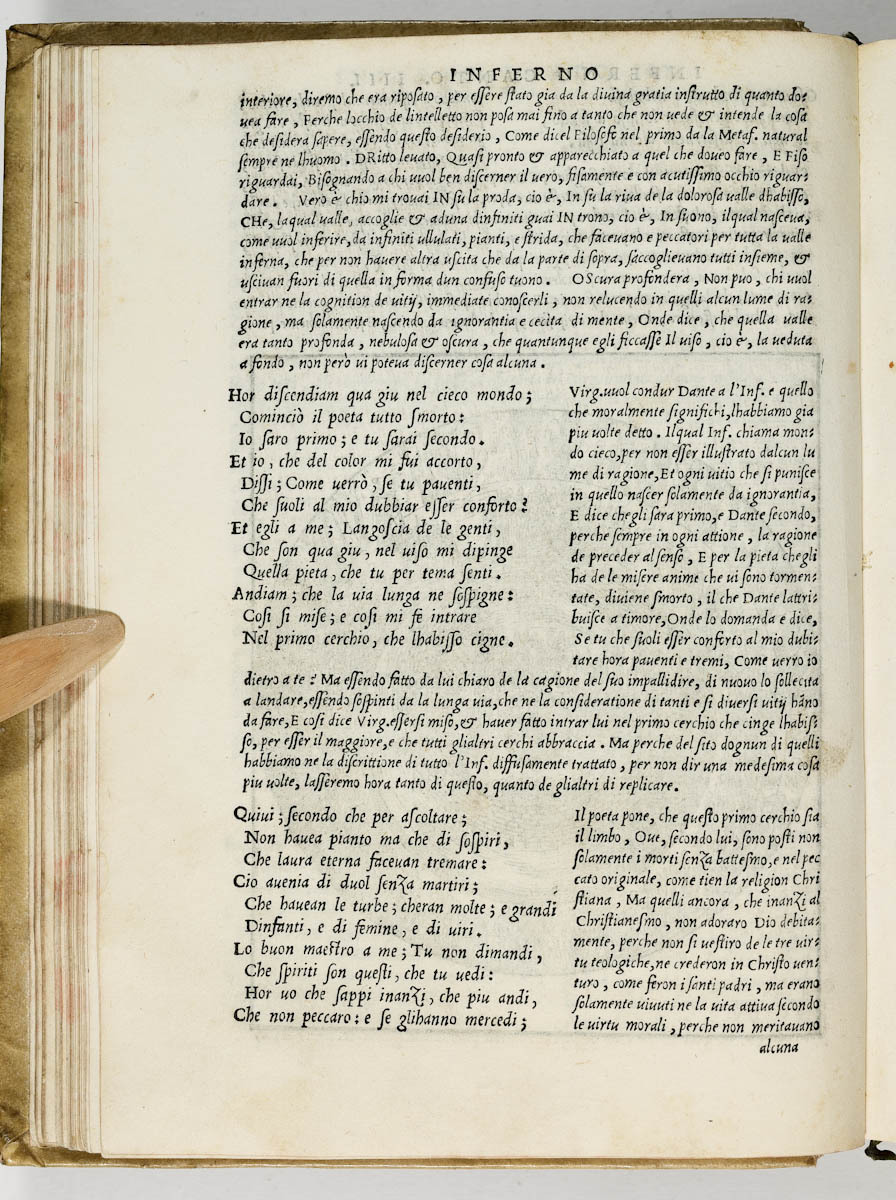 INFERNO
interiore, diremo che era riposato, per essere stato gia da la divina gratia instrutto di quanto do-
vea fare, Perche locchio de lintelletto non posa mai fino a tanto che non uede & intende la cosa
che desidera sapere, essendo questo desiderio, Come dicel Filosofo nel primo da la Metaf. natural
sempre ne lhuomo. DRitto leuato, Quasi pronto & apparecchiato a quel che doueo fare, E Fiso
riguardai, Bisognando a chi uuol ben discerner il uero, fisamente e con acutissimo occhio riguar-
dare. Vero è chio mi trouai IN su la proda, cio è, In su la riua de la dolorosa ualle dhabisso,
CHe, laqual ualle, accoglie & aduna dinfiniti guai IN trono, cio è, In suono, ilqual nasceua,
come uuol inferire, da infiniti ullulati, pianti, e strida, che faceuano e peccatori per tutta la ualle
inferna, che per non hauere altra uscita che da la parte di sopra, saccoglieuano tutti insieme, &
usciuan fuori di quella in forma dun confuso tuono. OScura profondera, Non puo, chi uuol
entrar ne la cognition de uitij, immediate conoscerli, non relucendo in quelli alcun lume di ra-
gione, ma solamente nascendo da ignorantia e cecita di mente, Onde dice, che quella ualle
era tanto profonda, nebulosa & oscura, che quantunque egli ficcasse Il uiso, cio è, la ueduta
a fondo, non però ui poteua discerner cosa alcuna.
Hor discendiam qua giu nel cieco mondo;
Cominciò il poeta tutto smorto:
Io saro primo; e tu sarai secondo.
Et io, che del color mi fui accorto,
Dissi; Come uerrò, se tu pauenti,
Che suoli al mio dubbiar esser conforto?
Et egli a me; Langoscia de le genti,
Che son qua giu, nel uiso mi dipinge
Quella pieta, che tu per tema senti.
Andiam; che la uia lunga ne sospigne:
Cosi si mise; e cosi mi fe intrare
Nel primo cerchio, che lhabisso cigne.
Virg. uuol condur Dante a l'Inf. e quello
che moralmente significhi, lhabbiamo gia
piu uolte detto. Ilqual Inf. chiama mon-
do cieco, per non esser illustrato dalcun lu
me di ragione, Et ogni uitio che si punisce
in quello nascer solamente da ignorantia,
E dice chegli sara primo, e Dante secondo,
perche sempre in ogni attione, la ragione
de preceder al senso, E per la pieta chegli
ha de le misere anime che ui sono tormen-
tate, diuiene smorto, il che Dante lattri-
buisce a timore, Onde lo domanda e dice,
Se tu che suoli esser conforto al mio dubi-
tare hora pauenti e tremi, Come uerro io
dietro a te? Ma essendo fatto da lui chiaro de la cagione del suo impallidire, di nuouo lo sollecita
a landare, essendo sospinti da la lunga uia, che ne la consideratione di tanti e si diuersi uitij hāno
da fare, E cosi dice Virg. essersi miso, & hauer fatto intrar lui nel primo cerchio che cinge lhabis-
so, per esser il maggiore, e che tutti glialtri cerchi abbraccia. Ma perche del sito dognun di quelli
habbiamo ne la discrittione di tutto l'Inf. diffusamente trattato, per non dir una medesima cosa
piu uolte, lasseremo hora tanto di questo, quanto de glialtri di replicare.
Quiui; secondo che per ascoltare;
Non hauea pianto ma che di sospiri,
Che laura eterna faceuan tremare:
Cio auenia di duol senza martiri;
Che hauean le turbe; cheran molte; e grandi
Dinfanti, e di femine, e di uiri.
Lo buon maestro a me; Tu non dimandi,
Che spiriti son questi, che tu uedi:
Hor uo che sappi inanzi, che piu andi,
Che non peccaro: e se glihanno mercedi;
Il poeta pone, che questo primo cerchio sia
il limbo, Oue, secondo lui, sono posti non
solamente i morti senza battesmo, e nel pec
cato originale, come tien la religion Chri
stiana, Ma quelli ancora, che inanzi al
Christianesmo, non adoraro Dio debita-
mente, perche non si uestiro de le tre uir-
tu teologiche, ne crederon in Christo uen-
turo, come feron i santi padri, ma erano
solamente uiuuti ne la uita attiua secondo
le uirtu morali, perche non meritauano
alcuna